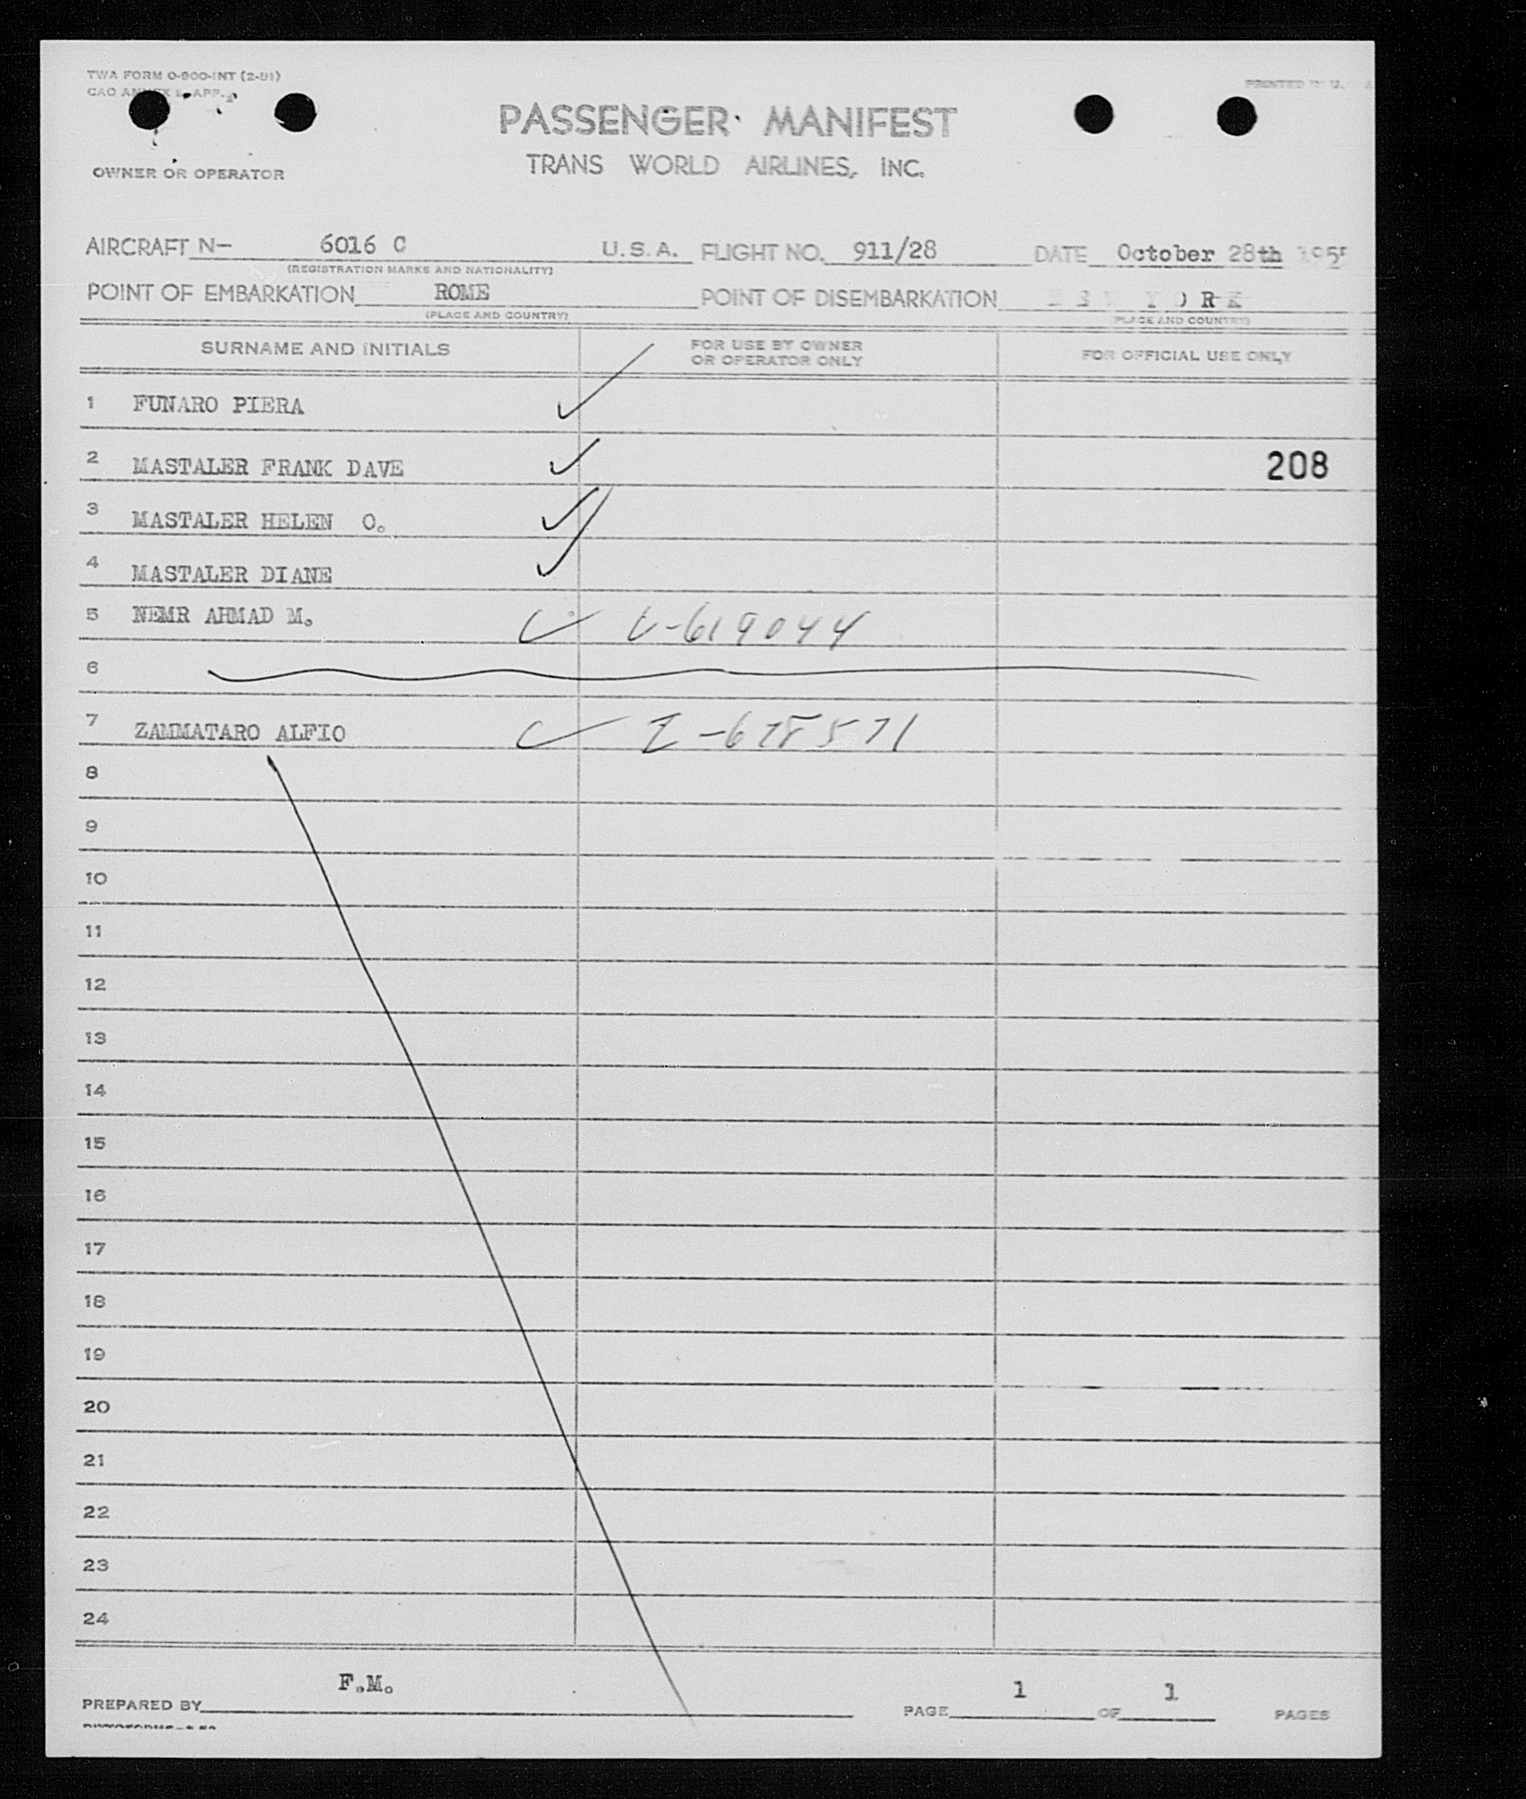 TWA FORM O-900-INT (2-51)
PASSENGER MANIFEST
TRANS WORLD AIRLINES, INC.
OWNER OR OPERATOR
AIRCRAFT N- 6016 C U.S.A. FLIGHT NO. 911/28 DATE October 28th 1955
(REGISTRATION MARKS AND NATIONALITY)
POINT OF EMBARKATION ROME POINT OF DISEMBARKATION NEW YORK
(PLACE AND COUNTRY) (PLACE AND COUNTRY)
SURNAME AND INITIALS FOR USE BY OWNER OR OPERATOR ONLY FOR OFFICIAL USE ONLY
1 FUNARO PIERA
2 MASTALER FRANK DAVE 208
3 MASTALER HELEN O.
4 MASTALER DIANE
5 NEMR AHMAD M. V-619044
6
7 ZAMMATARO ALFIO I-678571
8
9
10
11
12
13
14
15
16
17
18
19
20
21
22
23
24
PREPARED BY F.M. PAGE 1 OF 1 PAGES